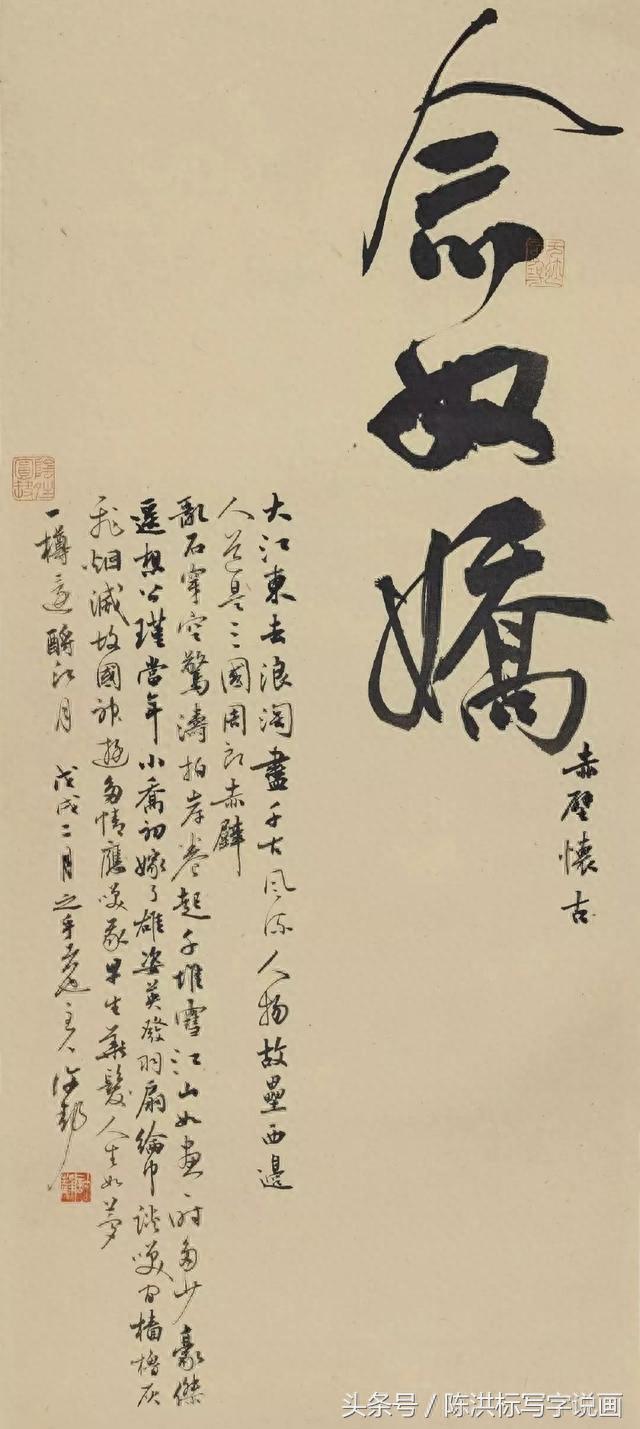 念奴嬌
赤壁懷古
大江東去浪淘盡千古風流人物故壘西邊
人道是三國周郎赤壁
亂石穿空驚濤拍岸卷起千堆雪江山如畫一時多少豪傑
遥想公瑾當年小喬初嫁了雄姿英發羽扇綸巾談笑間檣櫓灰
飛烟滅故國神遊多情應笑我早生華髮人生如夢
一樽還酹江月 戊戌二月
头条号 / 陈洪标写字说画